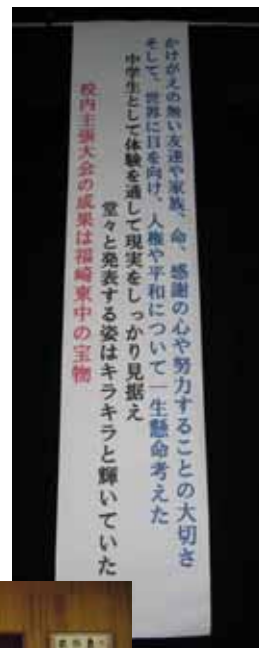 かけがえの無い友達や家族、命、感謝の心や努力することの大切さ
そして、世界に目を向け、人権や平和について一生懸命考えた
中学生として体験を通して現実をしっかり見据え
堂々と発表する姿はキラキラと輝いていた
校内主張大会の成果は福崎東中の宝物